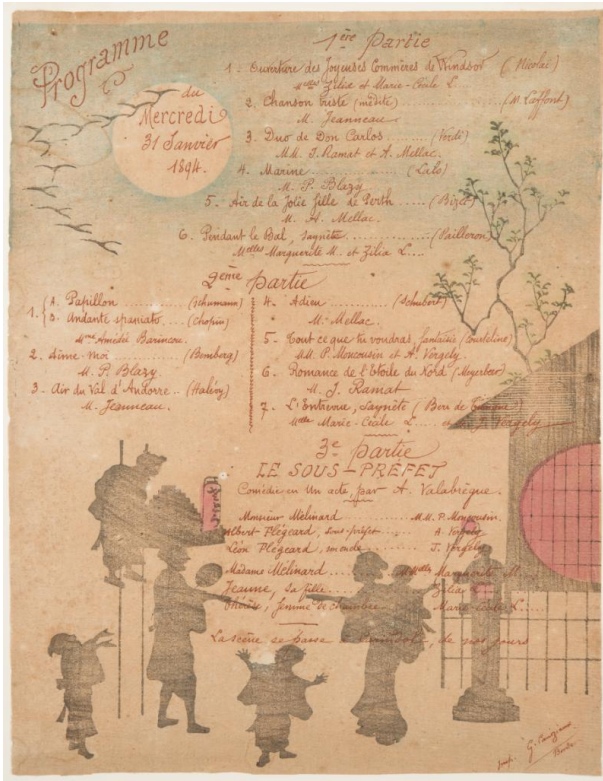 Programme
du
Mercredi
31 Janvier
1894.
1ère Partie
1. Ouverture des Joyeuses Commères de Windsor (Nicolaï)
Melles Zilia et Marie-Cécile L.
2. Chanson triste (inédite) (M. Laffont)
M. Jeanneau
3. Duo de Don Carlos (Verdi)
MM. J. Ramat et A. Mellac.
4. Marine (Lalo)
M. P. Blazy
5. Air de la Jolie fille de Perth (Bizet
M. A. Mellac.
6. Pendant le Bal, Saynète (Pailleron)
Melles Marguerite M. et Zilia L...
2ème Partie
1. A. Papillon (Schumann)
B. Andante spaniato (Chopin)
Mme Amédée
2. Aime-moi (Bemberg)
M. P. Blazy.
3. Air du Val d'Andorre (Halévy)
M. Jeanneau.
4. Adieu (Schubert)
M. Mellac.
5. Tout ce que tu voudras, fantaisie (Courteline)
MM. P. Moucousin et A. Vergely
6. Romance de l'Etoile du Nord (Meyerbeer)
M. J. Ramat
7. L'Entrevue, Saynète
Melle Marie-Cécile L. Vergely
3e Partie
LE SOUS-PRÉFET
Comédie en Un acte, par A. Valabrègue.
Monsieur Mélinard MM. P. Moucousin.
Albert Flégeard, sous-préfet A. Vergely
Léon Flégeard, J. Vergely
Madame Mélinard Melle Marguerite M.
Jeanne, sa fille Zilia L.
femme de chambre Marie Cécile L.
La scène se passe de nos jours